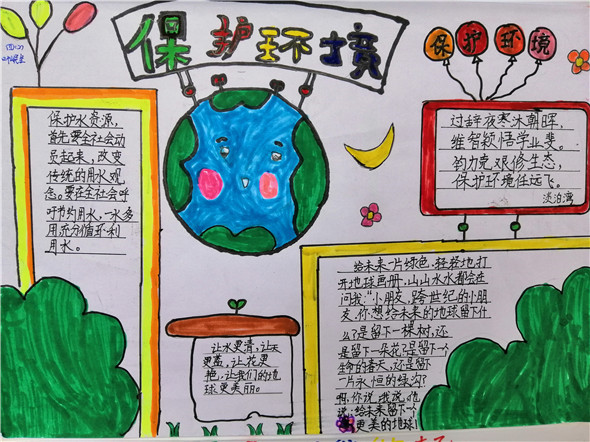 保护环境
保护环境
四(2)
保护水资源,
首先要全社会动
员起来,改变
传统的用水观
念。要在全社会呼
吁节约用水,一水多
用充分循环利
用水。
过辞夜寒沐朝晖,
维智颖悟学业斐。
钧力克艰修生态,
保护环境任远飞。
淡泊湾
让水更清,让天
更蓝,让花更
艳,让我们的地
球更美丽。
给未来一片绿色,轻轻地打
开地球画册,山山水水都会在
问我:“小朋友,跨世纪的小朋
友,你想给未来的地球留下什
么?是留下一棵树,还
是留下一朵花?是留下一个
生命的春天,还是留下
一片永恒的绿沟?
啊,你说,我说,他
说:给未来留下一个
更美的地球!